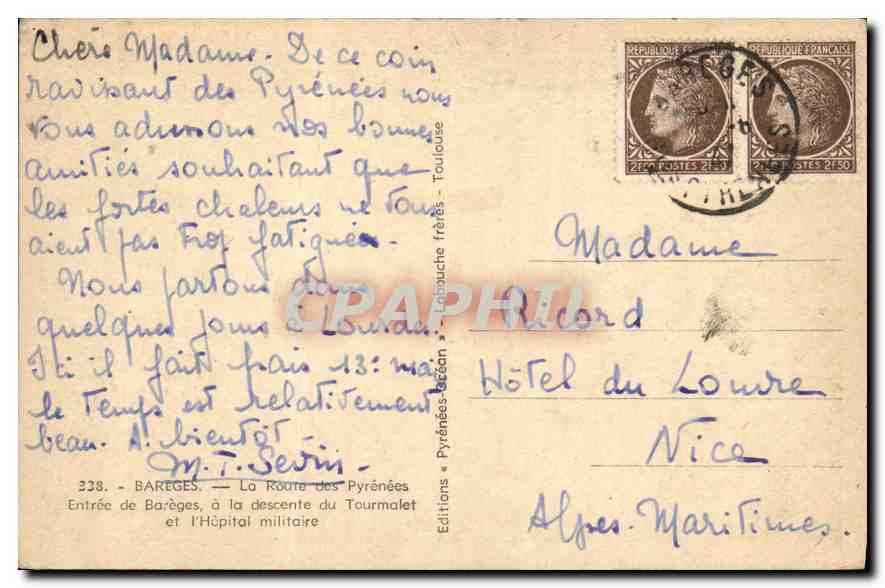 Chère Madame. De ce coin
ravissant des Pyrénées nous
vous adressons nos bonnes
amitiés souhaitant que
les fortes chaleurs ne vous
aient pas trop fatiguée.
Nous partons dans
quelques jours à Lourdes.
Ici il fait frais 13° mais
le temps est relativement
beau. A bientôt
M.T.
338. - BARÈGES. — La Route des Pyrénées
Entrée de Barèges, à la descente du Tourmalet
et l'Hôpital militaire
Editions « Pyrénées-Océan » - Labouche frères - Toulouse
REPUBLIQUE FRANÇAISE
2F50 POSTES 2F50
REPUBLIQUE FRANÇAISE
2F50 POSTES 2F50
BAREGES
Madame
Ricord
Hôtel du Louvre
Nice
Alpes-Maritimes.
CPAPHIL